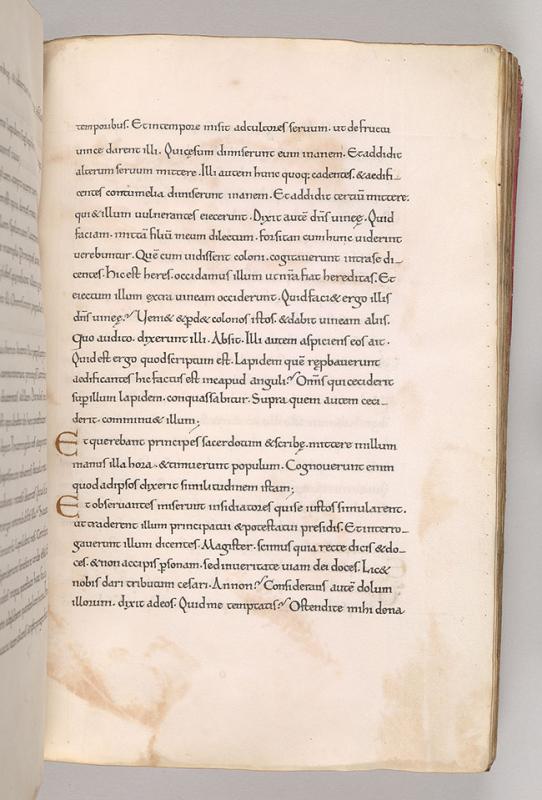 temporibus. Et in tempore misit ad cultores seruum. ut de fructu
uineę darent illi. Qui cęsum dimiserunt eum inanem. Et addidit
alterum seruum mittere. Illi autem hunc quoq; cedentes. & aedifi-
centes contumelia dimiserunt inanem. Et addidit tertiū mittere.
qui & illum uulnerantes eiecerunt. Dixit autē dn̄s uineę. Quid
faciam. mittā filiū meum dilectum. forsitan cum hunc uiderint
uerebuntur. Quē cum uidissent coloni. cogitauerunt intra se di-
centes. hic est heres. occidamus illum ut nr̄a fiat hereditas. Et
eiectum illum extra uineam occiderunt. Quid faci& ergo illis
dn̄s uineę? Veni& & ꝑd& colonos istos. & dabit uineam aliis.
Quo audito. dixerunt illi. Absit. Illi autem aspiciens eos ait.
Quid est ergo quod scriptum est. Lapidem quē reꝓbauerunt
aedificantes hic factus est in caput anguli? Omīs qui ceciderit
suꝑ illum lapidem. conquassabitur. Supra quem autem ceci-
derit. comminu& illum;
Et querebant principes sacerdotum & scribę. mittere in illum
manus illa hora. & timuerunt populum. Cognouerunt enim
quod ad ipsos dixerit similitudinem istam;
Et obseruantes miserunt insidiatores qui se iustos simularent.
ut traderent illum principatui & potestati presidis. Et interro-
gauerunt illum dicentes. Magister. scimus quia recte dicis & do-
ces. & non accipis ꝑsonam. sed in ueritate uiam dei doces. Lic&
nobis dari tributum cesari. An non? Considerans autē dolum
illorum. dixit ad eos. Quid me temptatis? Ostendite mihi dena